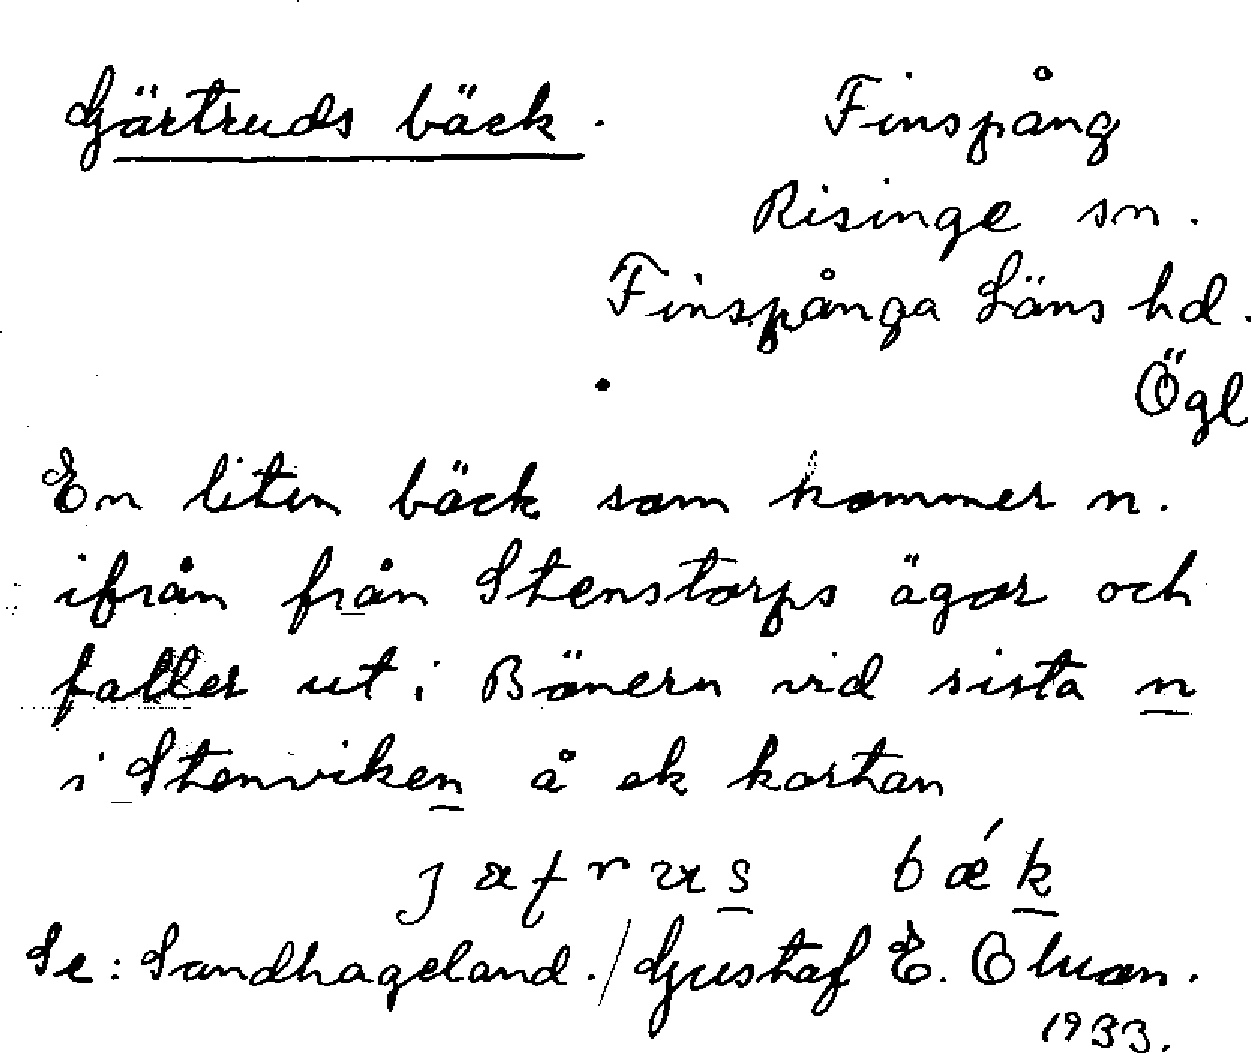 Gärtruds bäck. Finspång
Risinge sn.
Finspånga Läns hd.
Ögl
En liten bäck som kommer n.
ifrån från Stenstorps ägor och
faller ut i Bönern vid sista n
i Stenviken å ek kartan
bǽk
Se: Sandhageland. / Gustaf E. Olson.
1933.